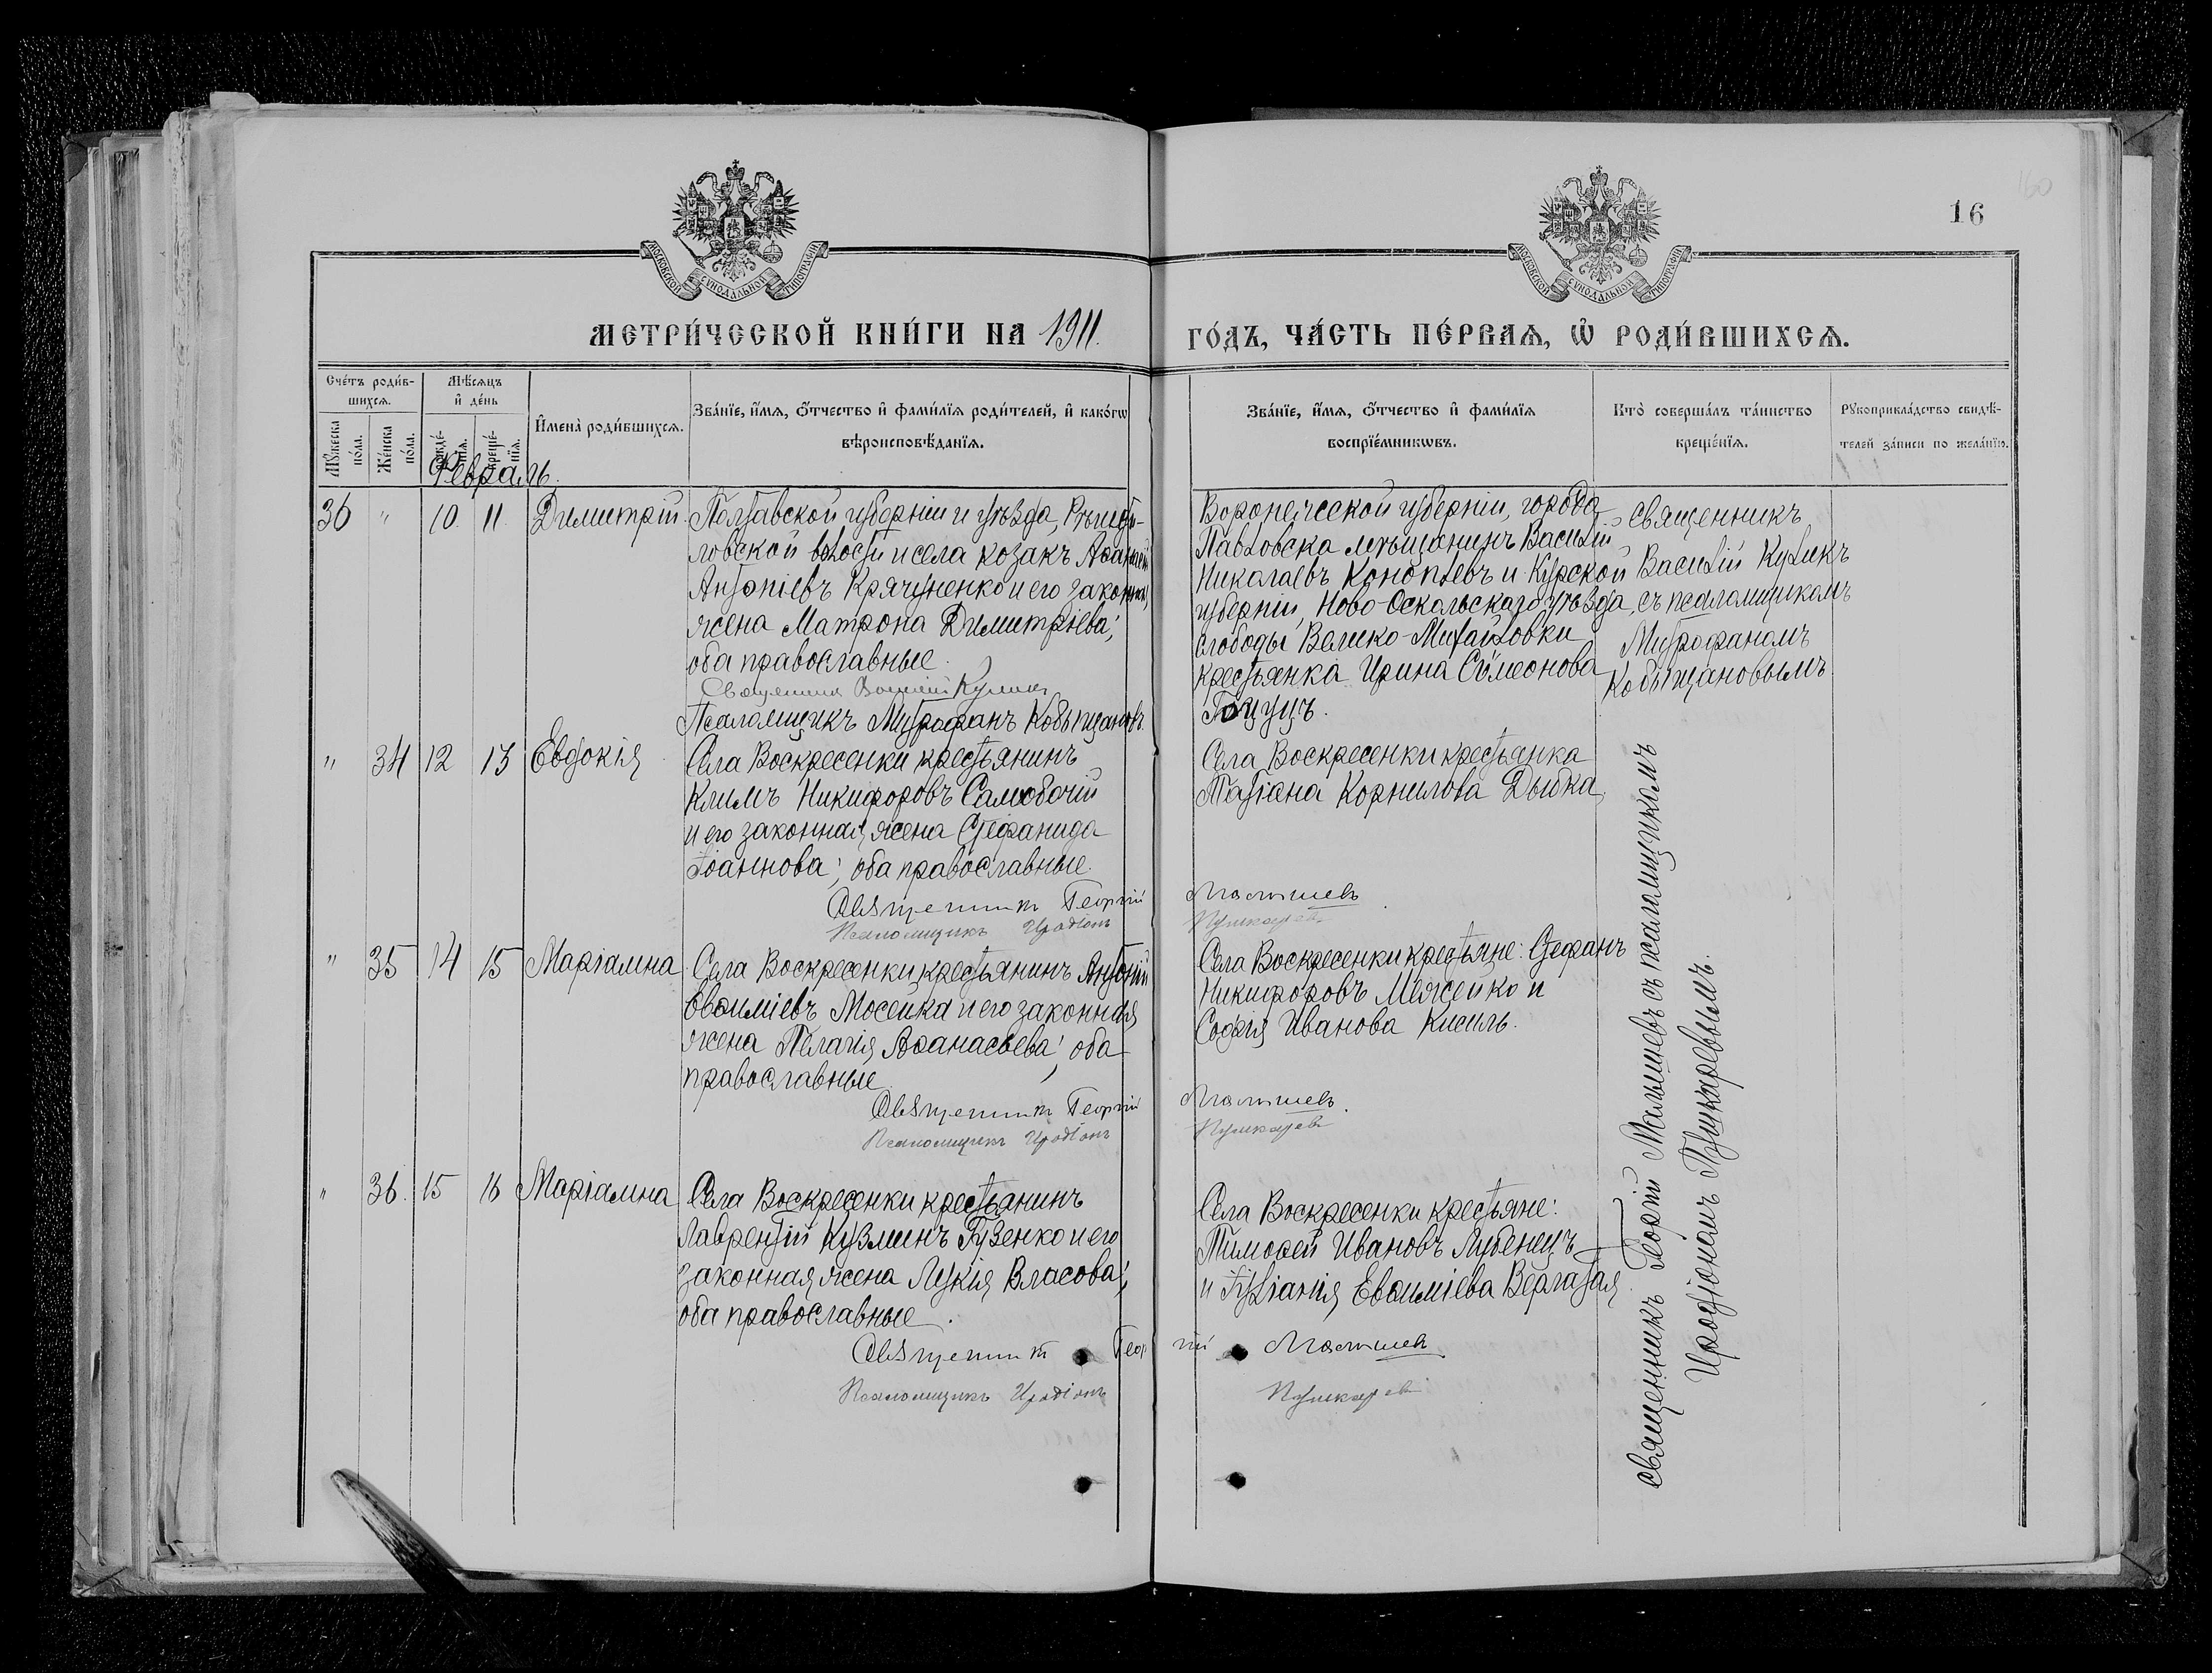 16
МОСКОВСКОЙ СѴНОДАЛЬНОЙ ТИПОГРАФІИ
МОСКОВСКОЙ СѴНОДАЛЬНОЙ ТИПОГРАФІИ
МЕТРИ́ЧЕСКОЙ КНИ́ГИ НА 1911. ГО́ДЪ, ЧА́СТЬ ПЕ́РВАѦ, Ѽ РОДИ́ВШИХСѦ.
Сче́тъ роди́в-
шихсѧ.
Мꙋ́жеска
по́ла.
Же́нска
по́ла.
Мѣ́сѧцъ
и҆ де́нь
рожде́-
нїѧ.
креще́-
нїѧ.
И҆мена̀ роди́вшихсѧ.
Зва́нїе, и҆́мѧ, ѻ҆́тчество и҆ фами́лїѧ роди́телей, и҆ како́гѡ
вѣроисповѣ́данїѧ.
Зва́нїе, и҆́мѧ, ѻ҆́тчество и҆ фами́лїѧ
воспрїе́мникѡвъ.
Кто̀ соверша́лъ та́инство
креще́нїѧ.
Рꙋкоприкла́дство свидѣ́-
телей за́писи по жела́нїю.
Февраль.
36 " 10. 11. Димитрій.
Полтавской губерніи и уѣзда,
ловской волости и села козакъ
Антоніевъ Крячуненко и его законная
жена Матрона Димитріева;
оба православные.
Священник Василий Кулик
Псаломщикъ Митрофанъ Кобыщановъ.
Воронежской губерніи, города
Павловска мѣщанинъ Василій
Николаевъ Коноплевъ и Курской
губерніи, Ново-Оскольскаго уѣзда,
слободы Велико-Михайловки
крестьянка Ирина Сѵмеонова
Гоцуцъ.
Священникъ
Василій Куликъ
съ псаломщикомъ
Митрофаномъ
Кобыщановымъ
" 34 12 13 Евдокія
Села Воскресенки крестьянинъ
Климъ Никифоровъ Самобочій
и его законная жена Стефанида
Іоаннова; оба православные.
Священникъ Георгій Малышевъ.
Псаломщикъ Иродіонъ Пушкаревъ
Села Воскресенки крестьянка
Татіана Корнилова Дыбка.
" 35 14 15 Маріамна
Села Воскресенки крестьянинъ Антоній
Евѳиміевъ Мосейка и его законная
жена Пелагія Аѳанасьева; оба
православные
Священникъ Георгій Малышевъ.
Псаломщикъ Иродіонъ Пушкаревъ
Села Воскресенки крестьяне: Стефанъ
Никифоровъ Мяжейко и
Софія Иванова Кисиль.
" 36. 15 16 Маріамна
Села Воскресенки крестьянинъ
Лаврентій Кузминъ Гузенко и его
законная жена Лукія Власова;
оба православные.
Священникъ Георгій Малышевъ
Псаломщикъ Иродіонъ Пушкаревъ
Села Воскресенки крестьяне:
Тимоѳей Ивановъ Лубенецъ
и Іуліанія Евѳиміева Верлатая
Священникъ Георгій Малышевъ съ псаломщикомъ
Иродіономъ Пушкаревымъ.